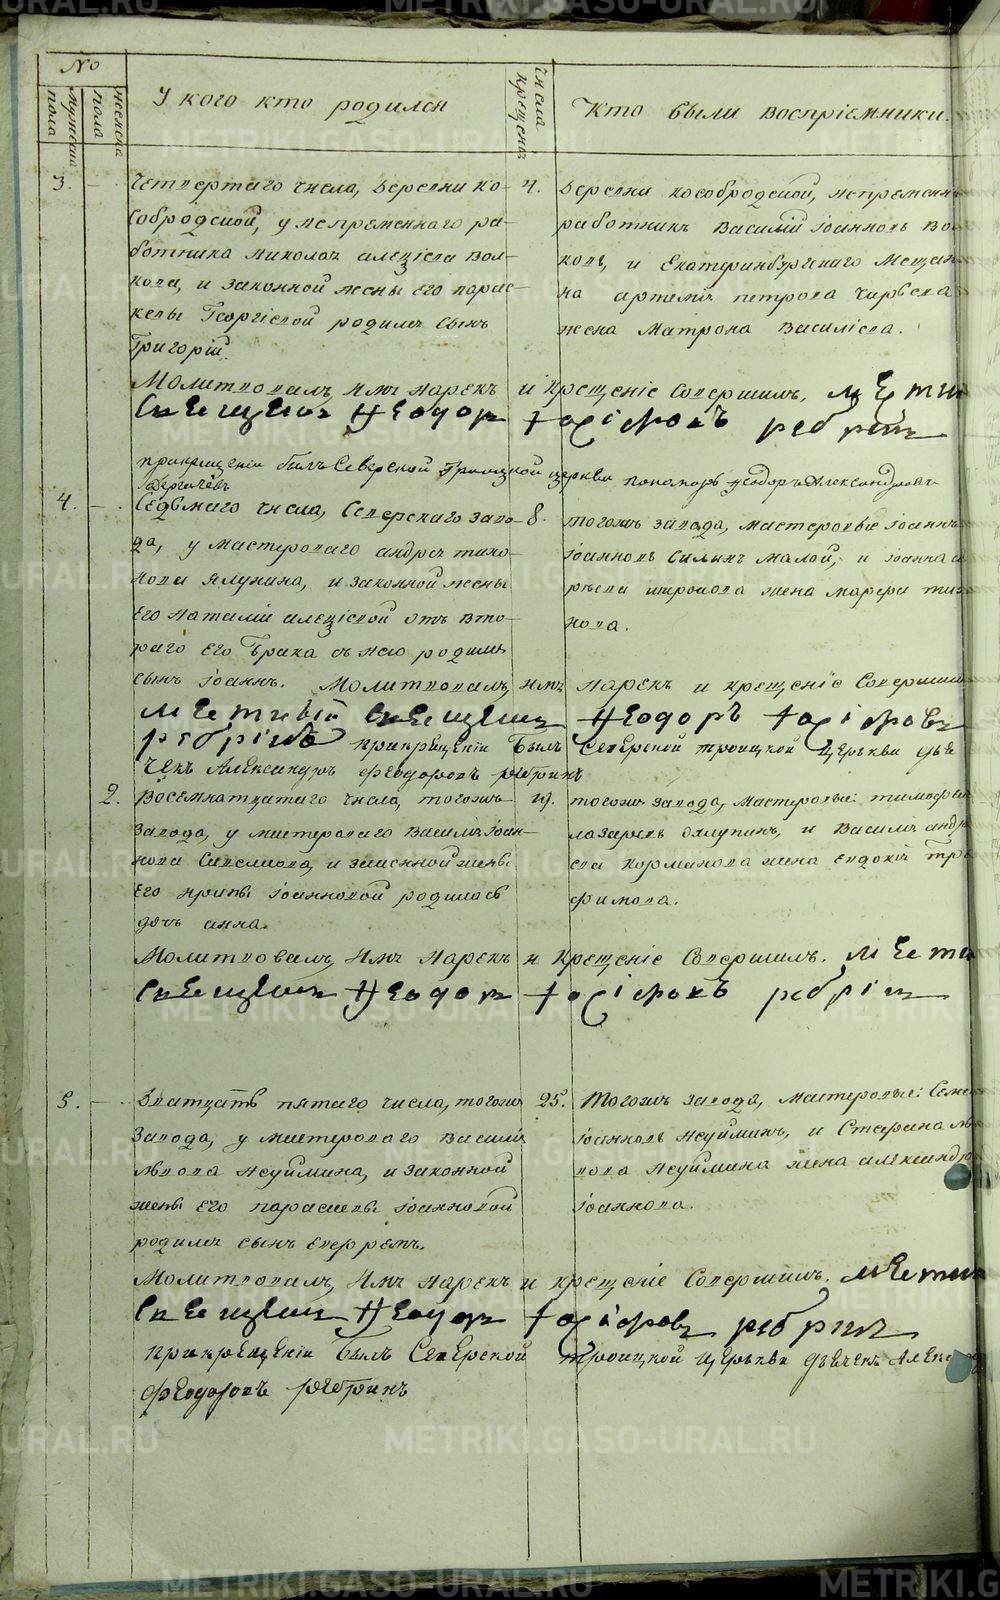 №
мужеска пола
женска пола
У кого кто родился
Числа крещенія
Кто были воспріемники
3.
Четвертаго числа, деревни Ко-
собродской, у непременнаго ра-
ботника Николая Алезіева Вол-
кова, и законной жены его Парас-
кевы Георгіевой родился сынъ
Григорій.
4.
деревни Кособродской, непременн
работникъ Василій Іоанновъ Во
ковъ, и Екатеринбургскаго Мещан
на Артемія Петрова
жена Матрона Василіева.
Молитвовалъ, Имя нарекъ и крещеніе Совершилъ, Местн
Священни Ѳеодор Ѳеодоровъ Ребринъ
при крещеніи былъ Северской Троицкой церкви пономарь Ѳеодоръ Александровъ
Дергачевъ
4.
Седьмаго числа, Северскаго заво-
да, у мастероваго Андрея Тихо-
нова Ялунина, и законной жены
Его Наталіи Алезіевой отъ вто-
раго его брака съ нею родился
сынъ Іоаннъ.
8.
тогожъ завода, мастеровые Іоаннъ
Іоанновъ Силинъ малой, и Іоанна
жена Марфа Тих
нова.
Молитвовалъ, имя нарекъ и крещеніе Совершилъ
Местный Священник Ѳеодоръ Ѳеодоровъ
Ребринъ при крещеніи былъ Северской Троицкой Церькви дья
чекъ Александръ Феодоровъ Ребринъ
2.
Восемнатцатаго числа, тогожъ
завода, у мастероваго Василія Іоан-
нова и законной жены
Его Ирины Іоанновой родилась
дочь Анна.
19.
тогожъ завода, мастеровые: Тимофей
Лазаревъ Ялунинъ, и Василія Андр
ева Корманова жена Евдокія Тро
фимова.
Молитвовалъ, Имя Нарекъ и Крещеніе Совершилъ. Местн
Священник Ѳеодор Ѳеодоровъ Ребрин
5.
Дватцать пятаго числа, тогожъ
завода, у мастероваго Василія
Львова Неуймина, и законной
жены Его Парасковьи Іоанновой
родился сынъ Евфремъ.
25.
Тогожъ завода, мастеровые: Семе
Іоанновъ Неуйминъ, и Стефана Ль
вова Неуймина жена Александра
Іоаннова.
Молитвовалъ, Имя нарекъ и крещеніе Совершилъ. Местн
Священник Ѳеодор Ѳеодоров Ребринъ
При крещеніи былъ Северской Троицкой Церькви дьячекъ Александр
Феодоровъ Ребринъ
METRIKI.GASO-URAL.RU